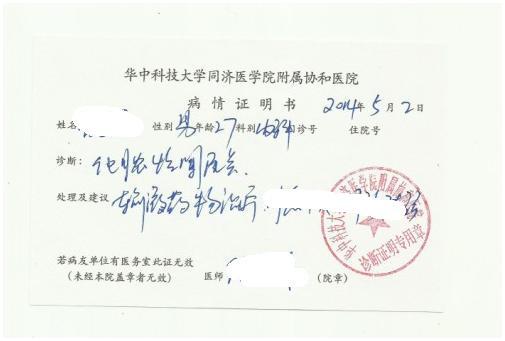 华中科技大学同济医学院附属协和医院
病情证明书 2014年5月2日
姓名 性别 男 年龄 27 科别 内科 门诊号 住院号
诊断: 化脓性阑尾炎.
处理及建议 药物治疗.
若病友单位有医务室此证无效
(未经本院盖章者无效) 医师 (院章)
诊断证明专用章